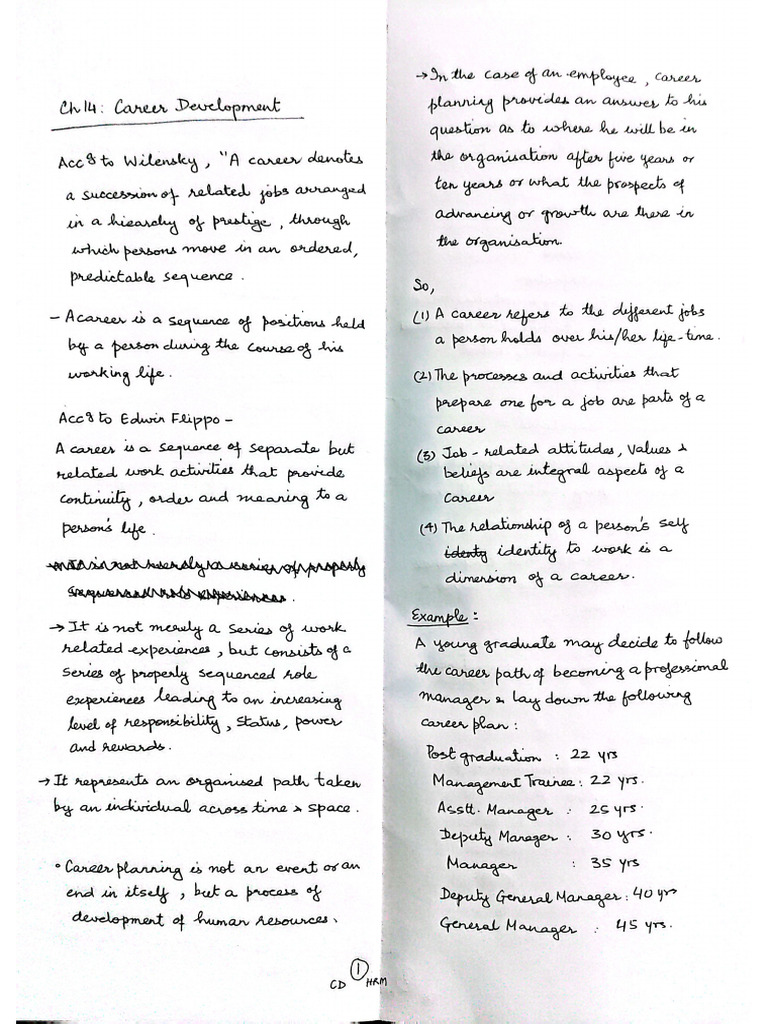 Ch 14: Career Development
Acc g to Wilensky, "A career denotes
a succession of related jobs arranged
in a hiearchy of prestige, through
which persons move in an ordered,
predictable sequence.
- A career is a sequence of positions held
by a person during the course of his
working life.
Acc g to Edwin Flippo -
A career is a sequence of separate but
related work activities that provide
continuity, order and meaning to a
person's life.
It is not merely a series of properly
sequenced role experiences.
→ It is not merely a series of work
related experiences, but consists of a
series of properly sequenced role
experiences leading to an increasing
level of responsibility, status, power
and rewards.
→ It represents an organised path taken
by an individual across time & space.
• Career planning is not an event or an
end in itself, but a process of
development of human resources.
→ In the case of an employee, career
planning provides an answer to his
question as to where he will be in
the organisation after five years or
ten years or what the prospects of
advancing or growth are there in
the organisation.
So,
(1) A career refers to the different jobs
a person holds over his/her life-time.
(2) The processes and activities that
prepare one for a job are parts of a
career
(3) Job-related attitudes, values &
beliefs are integral aspects of a
career
(4) The relationship of a person's self
identy identity to work is a
dimension of a career.
Example:
A young graduate may decide to follow
the career path of becoming a professional
manager & lay down the following
career plan:
Post graduation : 22 yrs
Management Trainee: 22 yrs.
Asstt. Manager : 25 yrs.
Deputy Manager : 30 yrs.
Manager : 35 yrs
Deputy General Manager: 40 yrs
General Manager : 45 yrs.
CD 1 HRM